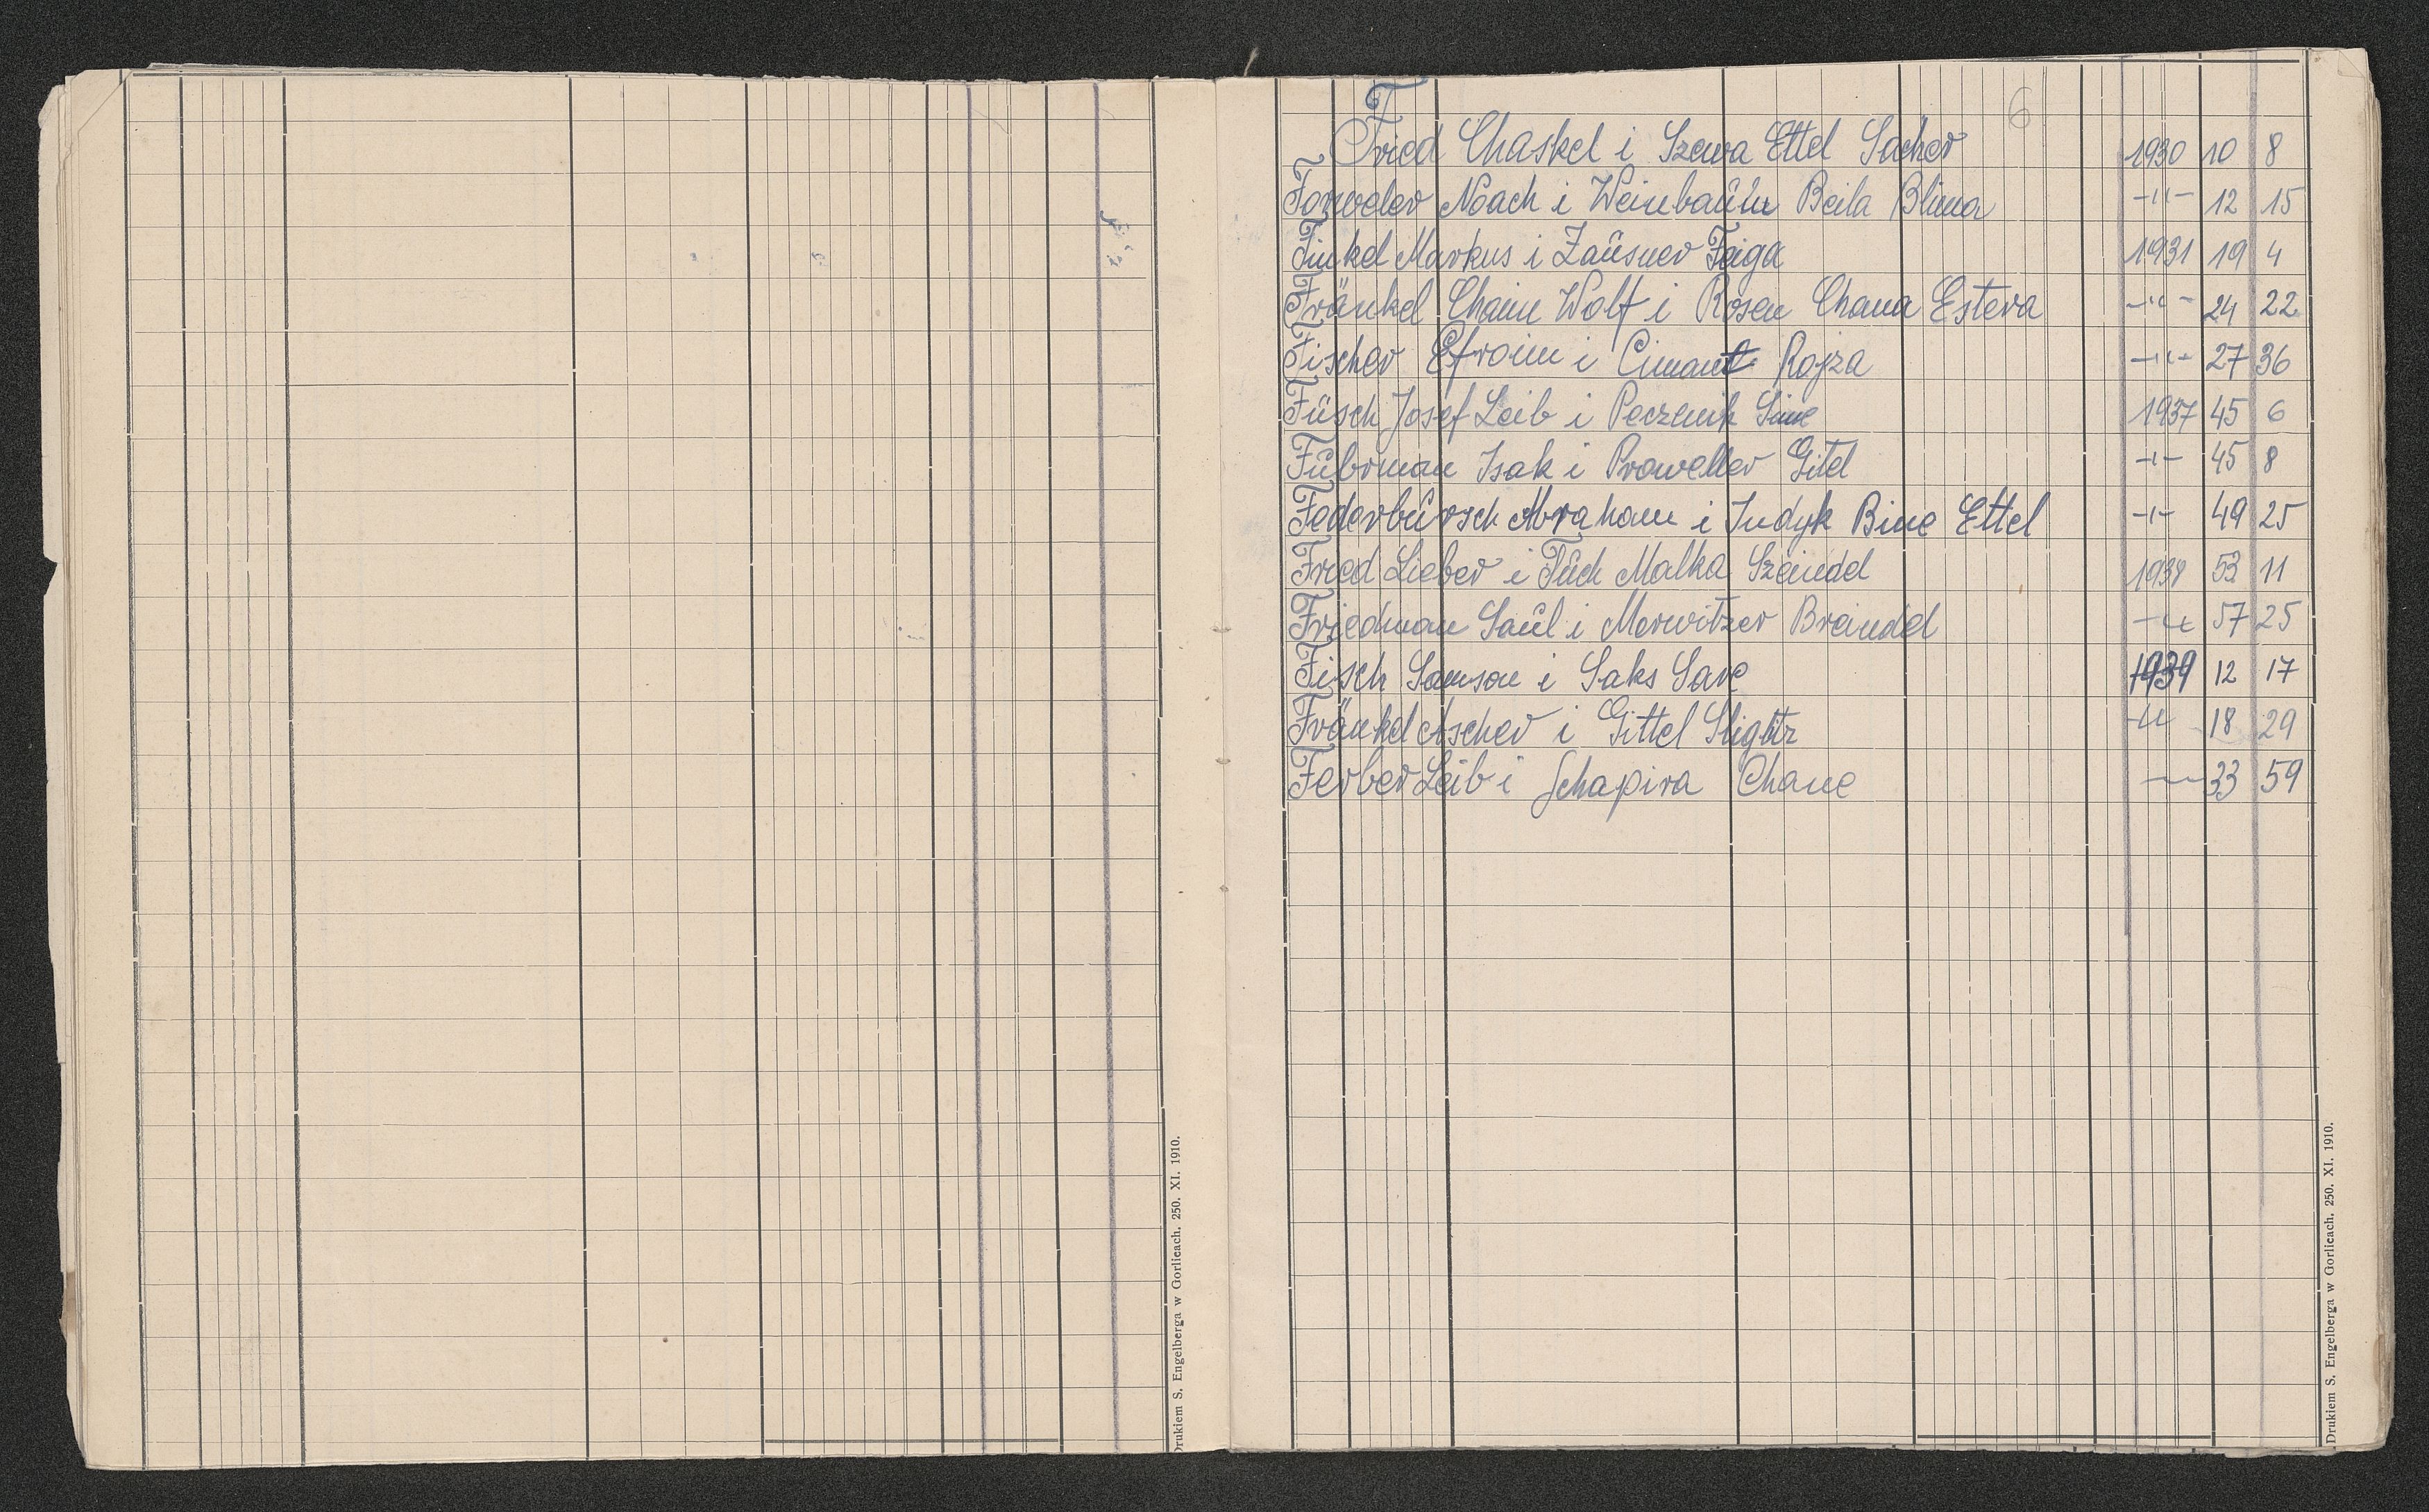 6
Fried Chaskel i Szewa Ettel Sacher 1930 10 8
Forweler Noach i Weinbaum Beila Blima -"- 12 15
Finkel Markus i Zausner Feiga 1931 19 4
Fränkel Chaim Wolf i Rosen Chana Estera -"- 24 22
Fischer Efroim i Cimant Rojza -"- 27 36
Füsch Josef Leib i Peczenik Sime 1937 45 6
Fuhrman Isak i Proweller Gitel -"- 45 8
Federbusch Abraham i Indyk Bine Ettel -"- 49 25
Fried Lieber i Tuch Malka Szeindel 1938 53 11
Friedman Saul i Merwitzer Breindel -"- 57 25
Fisch Samson i Saks Sare 1939 12 17
Fränkel Ascher i Gittel -"- 18 29
Ferber Leib i Schapira Chane -"- 33 59
Drukiem S. Engelberga w Gorlicach. 250. XI. 1910.
Drukiem S. Engelberga w Gorlicach. 250. XI. 1910.